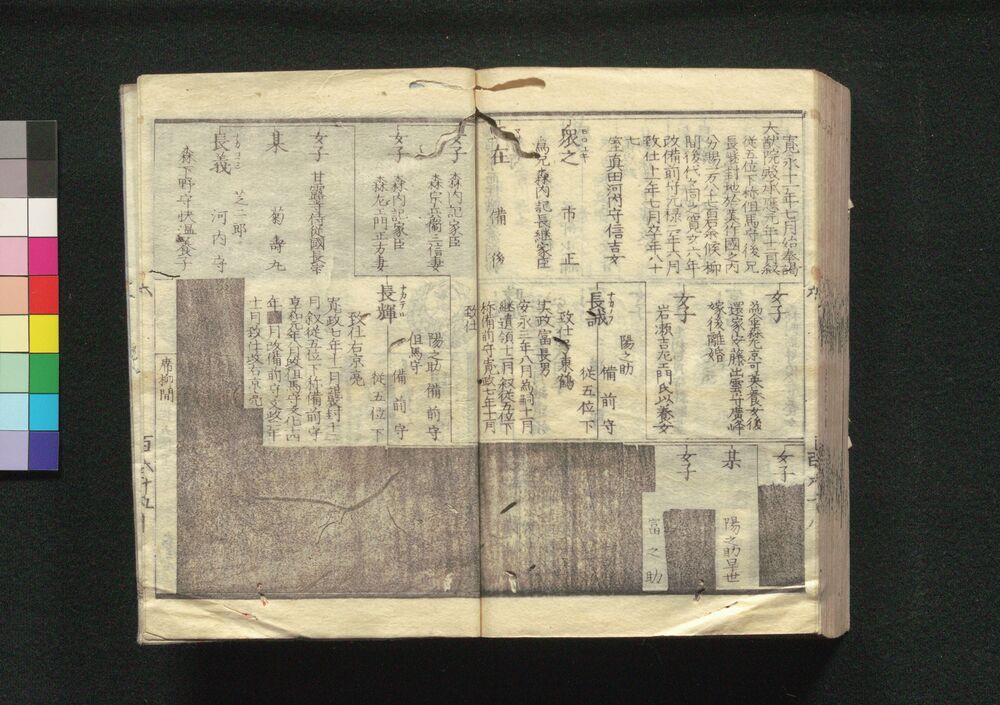 寛永十一年七月始奉謁
大猷院殿承應元年十二月叙
従五位下称但馬守後兄
長継封地於美作國之内
分賜一万八千七百石余候柳
間後代々同之寛文六年
改備前守元禄二年六月
致仕十一年七月卒年八十
七
室真田河内守信吉女
衆之 市正
為兄森内記長継家臣
在 備後
女子 森内記家臣
森宗兵衛三信妻
女子 森内記家臣
森左門正方妻
女子 甘露寺侍従國長室
某 菊壽丸
長義 芝二郎 河内守
森下野守快温養子
女子
還家安藤出雲守廣峰
嫁後離婚
女子
岩瀬吉左エ門氏以養女
長誠 陽之助 備前守
従五位下
致仕 東鶴
実政富長男
安永三年八月為嗣十一月
継遺領十二月叙従五位下
称備前守寛政七年十一月
致仕
長輝 陽之助 備前守
但馬守
備前守
従五位下
致仕右京亮
寛政七年十一月襲封十二
月叙従五位下称備前守
享和元年八月改但馬守文化四
年 月改備前守文政二年
十月致仕改右京亮
席柳間
女子
某 陽之助早世
女子
富之助